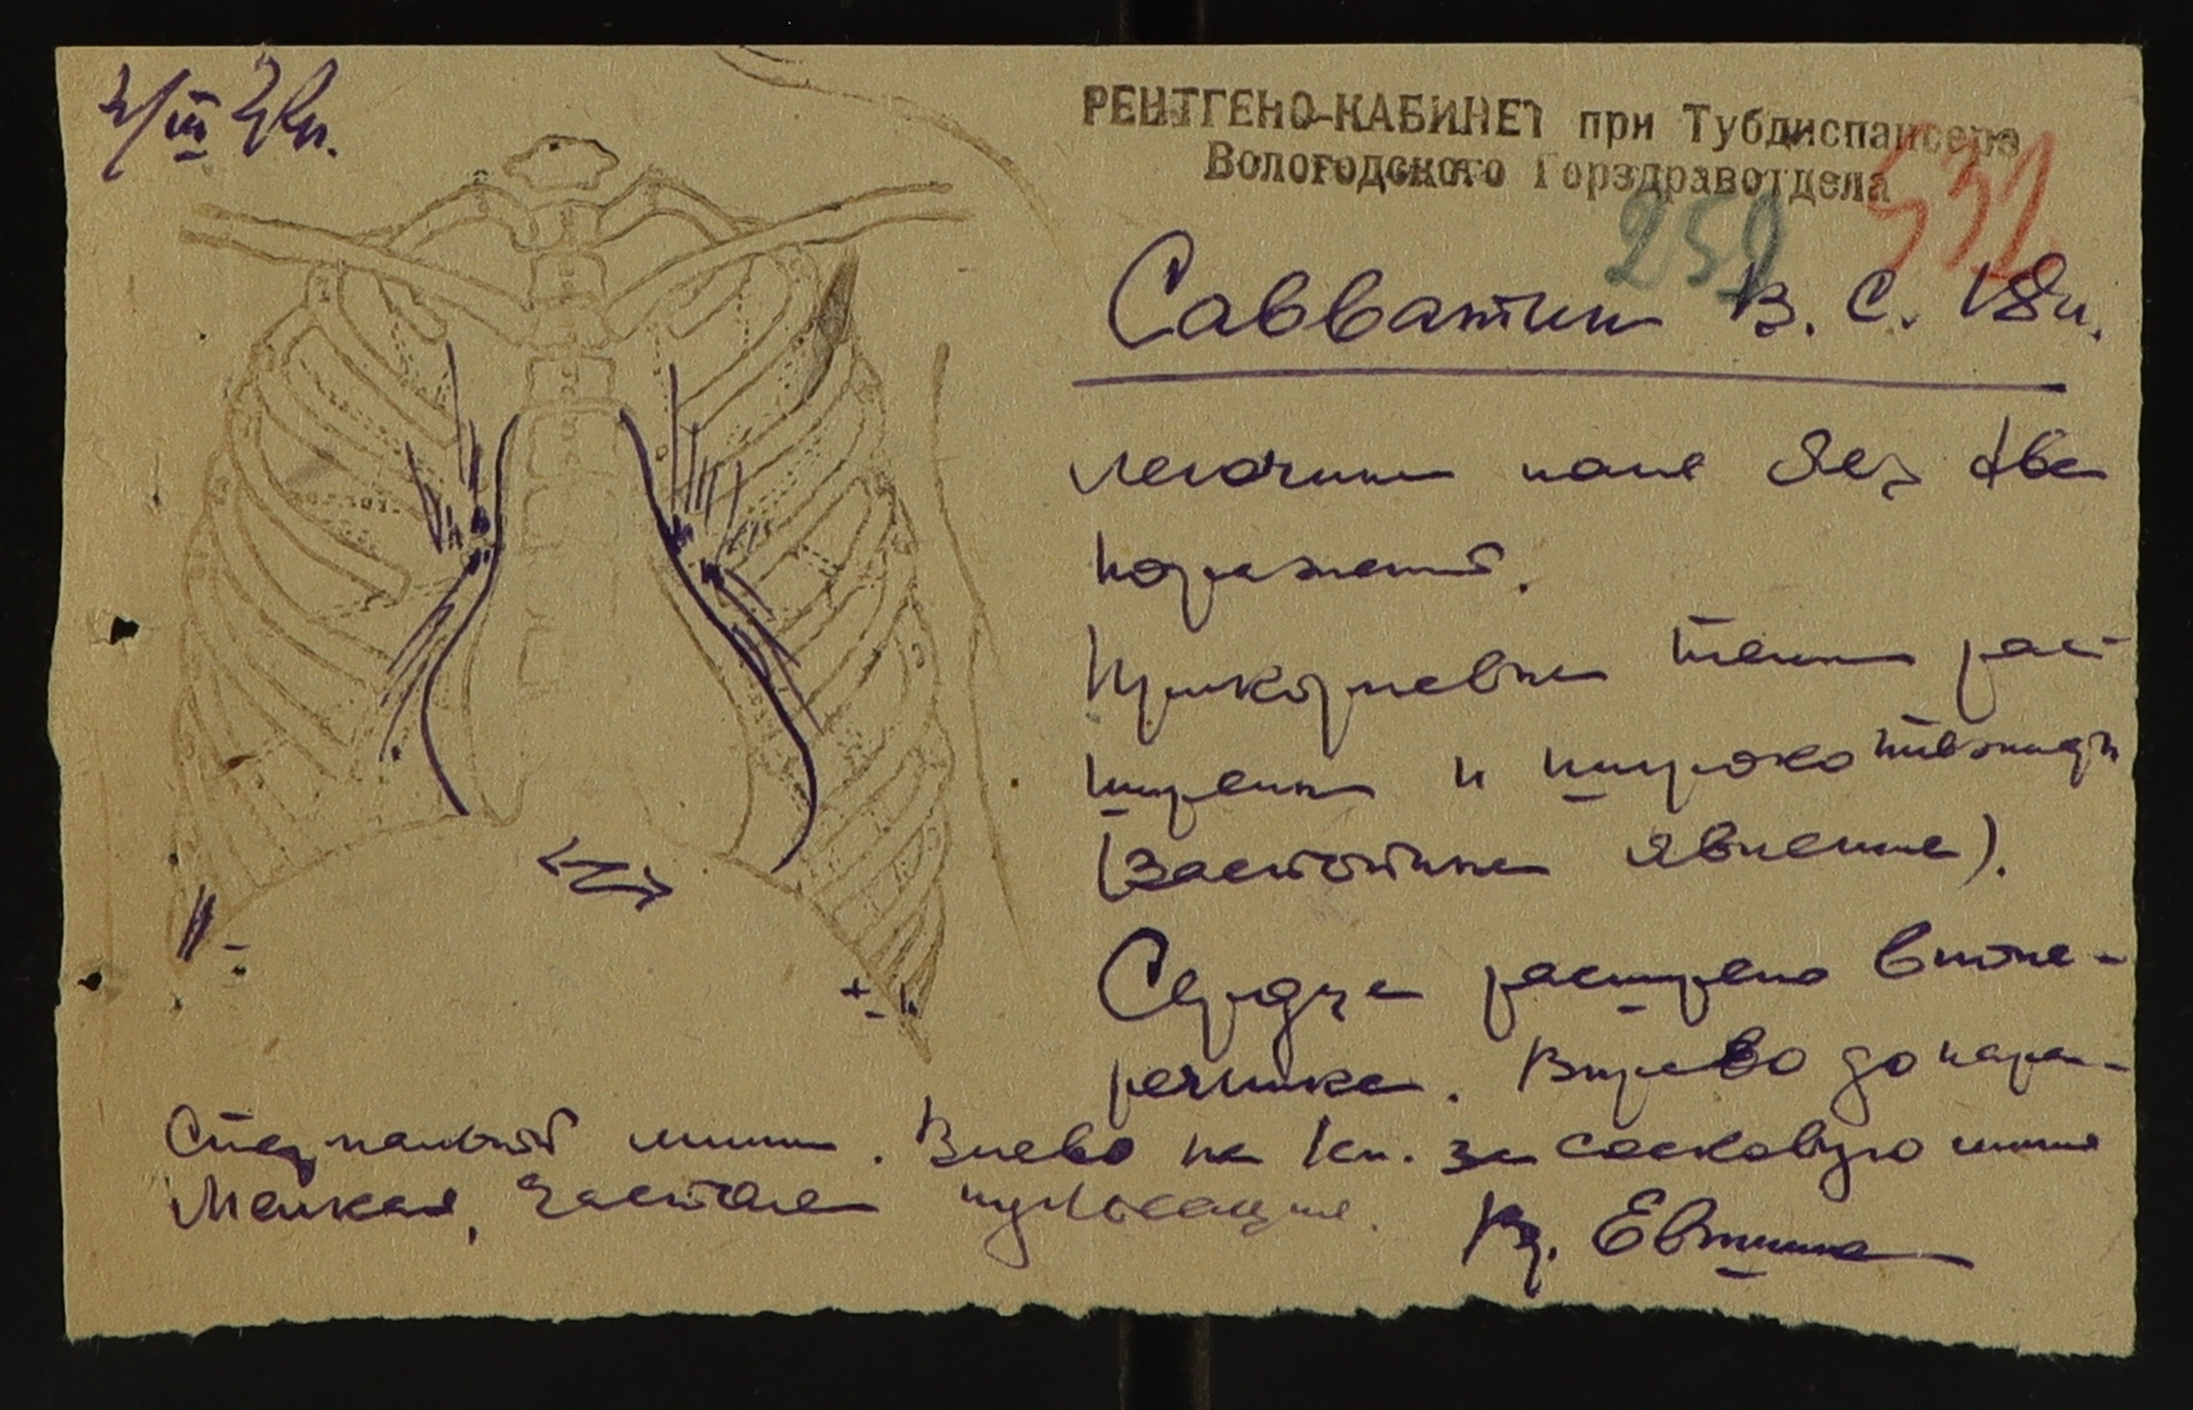 РЕНТГЕНО-КАБИНЕТ при Тубдиспансере
Вологодского Горздравотдела
259 532
Савватин В. С. 18л.
Легочные поля без
поражений.
Прикорневые тени рас-
ширены и широко
(Застойные явления).
Сердце расширено в попе-
речнике. Вправо до пара-
стернальной линии. Влево на 1см. за сосковую линию
Мелкая, частая пульсация.
Вр.